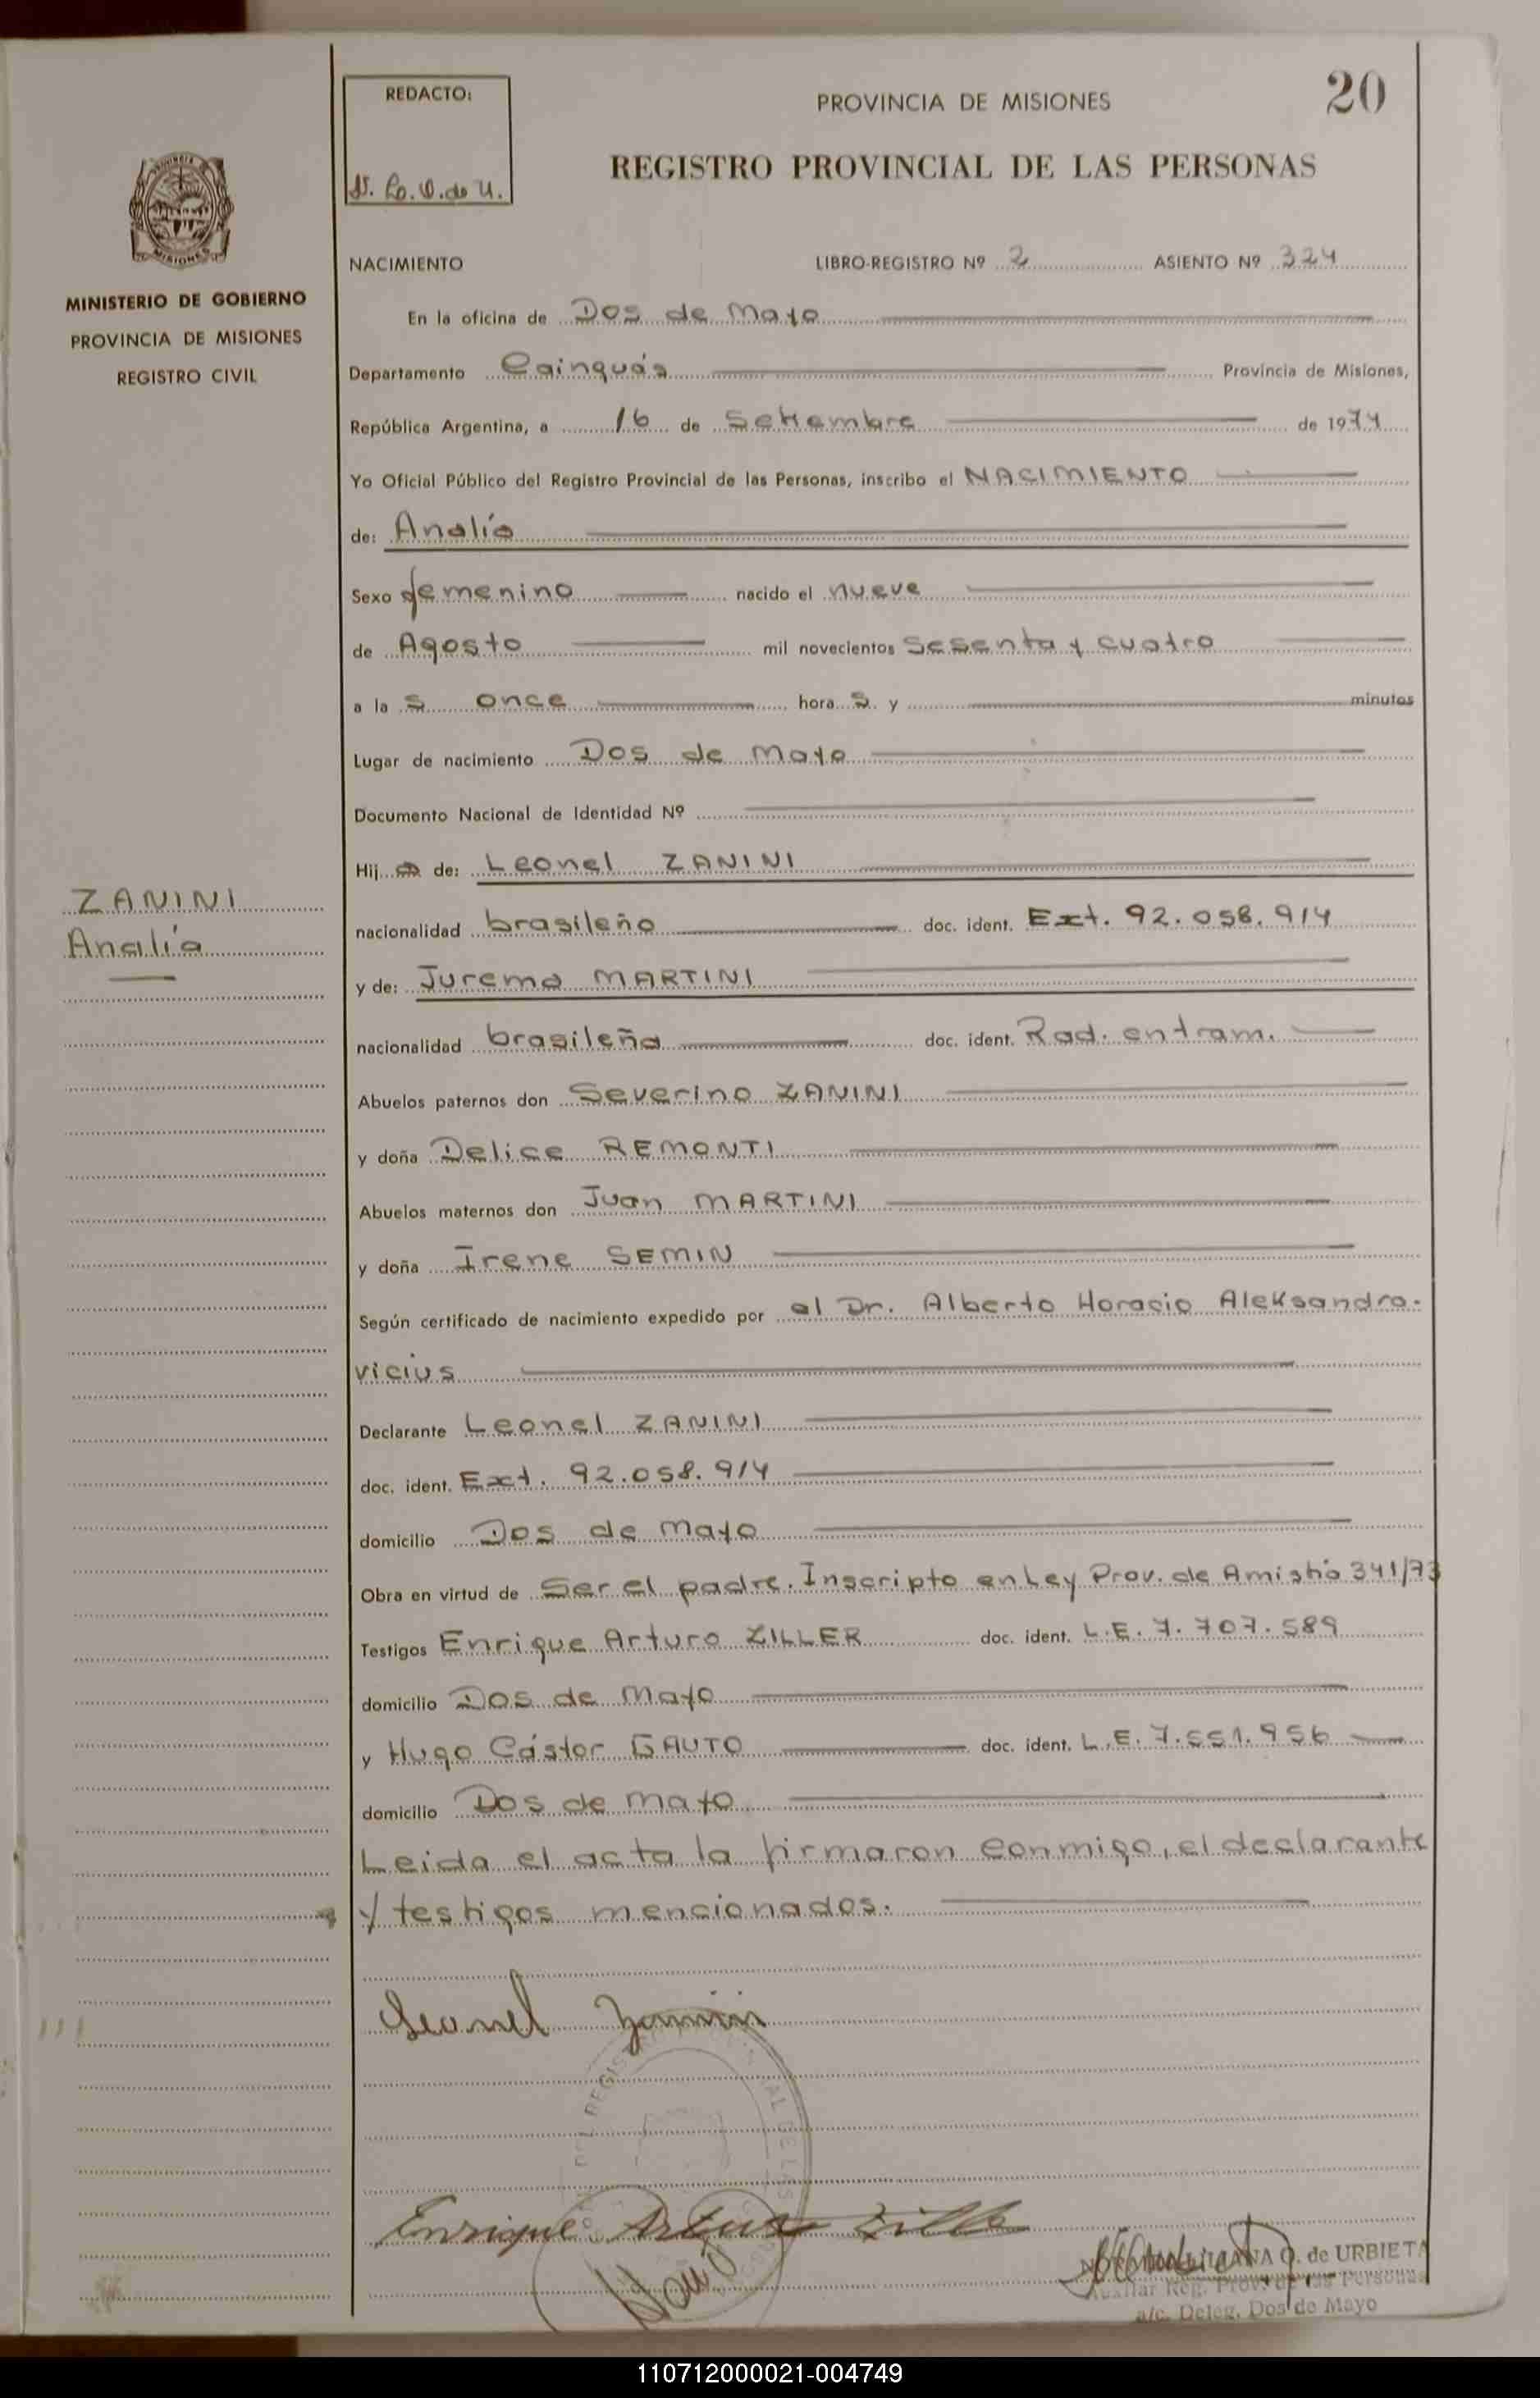 REDACTO:
PROVINCIA DE MISIONES
20
REGISTRO PROVINCIAL DE LAS PERSONAS
MISIONES
MINISTERIO DE GOBIERNO
PROVINCIA DE MISIONES
REGISTRO CIVIL
NACIMIENTO LIBRO-REGISTRO Nº 2 ASIENTO Nº 324
En la oficina de Dos de Mayo
Departamento Cainguás Provincia de Misiones,
República Argentina, a 16 de Setiembre de 1974
Yo Oficial Público del Registro Provincial de las Personas, inscribo el NACIMIENTO
de: Analía
Sexo femenino nacido el nueve
de Agosto mil novecientos sesenta y cuatro
a la s once hora s y minutos
Lugar de nacimiento Dos de Mayo
Documento Nacional de Identidad Nº
Hij a de: Leonel ZANINI
ZANINI
Analía
nacionalidad brasileño doc. ident. Ext. 92.058.914
y de: Jurema MARTINI
nacionalidad brasileña doc. ident. Rad. en tram.
Abuelos paternos don Severino ZANINI
y doña Delice REMONTI
Abuelos maternos don Juan MARTINI
y doña Irene SEMIN
Según certificado de nacimiento expedido por el Dr. Alberto Horacio Aleksandro-
vicius
Declarante Leonel ZANINI
doc. ident. Ext. 92.058.914
domicilio Dos de Mayo
Obra en virtud de Ser el padre. Inscripto en Ley Prov. de Amistía 341/73
Testigos Enrique Arturo ZILLER doc. ident. L.E. 7.707.589
domicilio Dos de Mayo
y Hugo Cástor GAUTO doc. ident. L.E. 7.551.956
domicilio Dos de Mayo
Leida el acta la firmaron conmigo, el declarante
y testigos mencionados.
Leonel Zanini
Enrique Arturo Ziller
de URBIETA
Auxiliar Reg. Prov. de las Personas
a/c. Deleg. Dos de Mayo
110712000021-004749